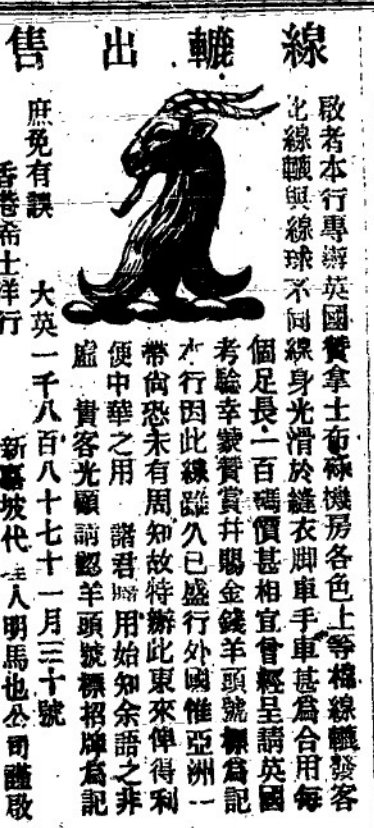 線轆出售
啟者本行專辦英國贊拿士布祿機房各色上等棉線轆發客
此線轆與線球不同線身光滑於縫衣脚車手車甚爲合用每
個足長一百碼價甚相宜曾經呈請英國
考驗幸蒙贊賞幷賜金錢羊頭號標爲記
本行因此線雖久已盛行外國惟亞洲一
帶尙恐未有周知故特辦此東來俾得利
便中華之用 諸君賜用始知余語之非
虛 貴客光顧請認羊頭號標招牌爲記
庶免有誤 大英一千八百八十七十一月三十號
香港希士洋行 新嘉坡代理人明馬也公司謹啟